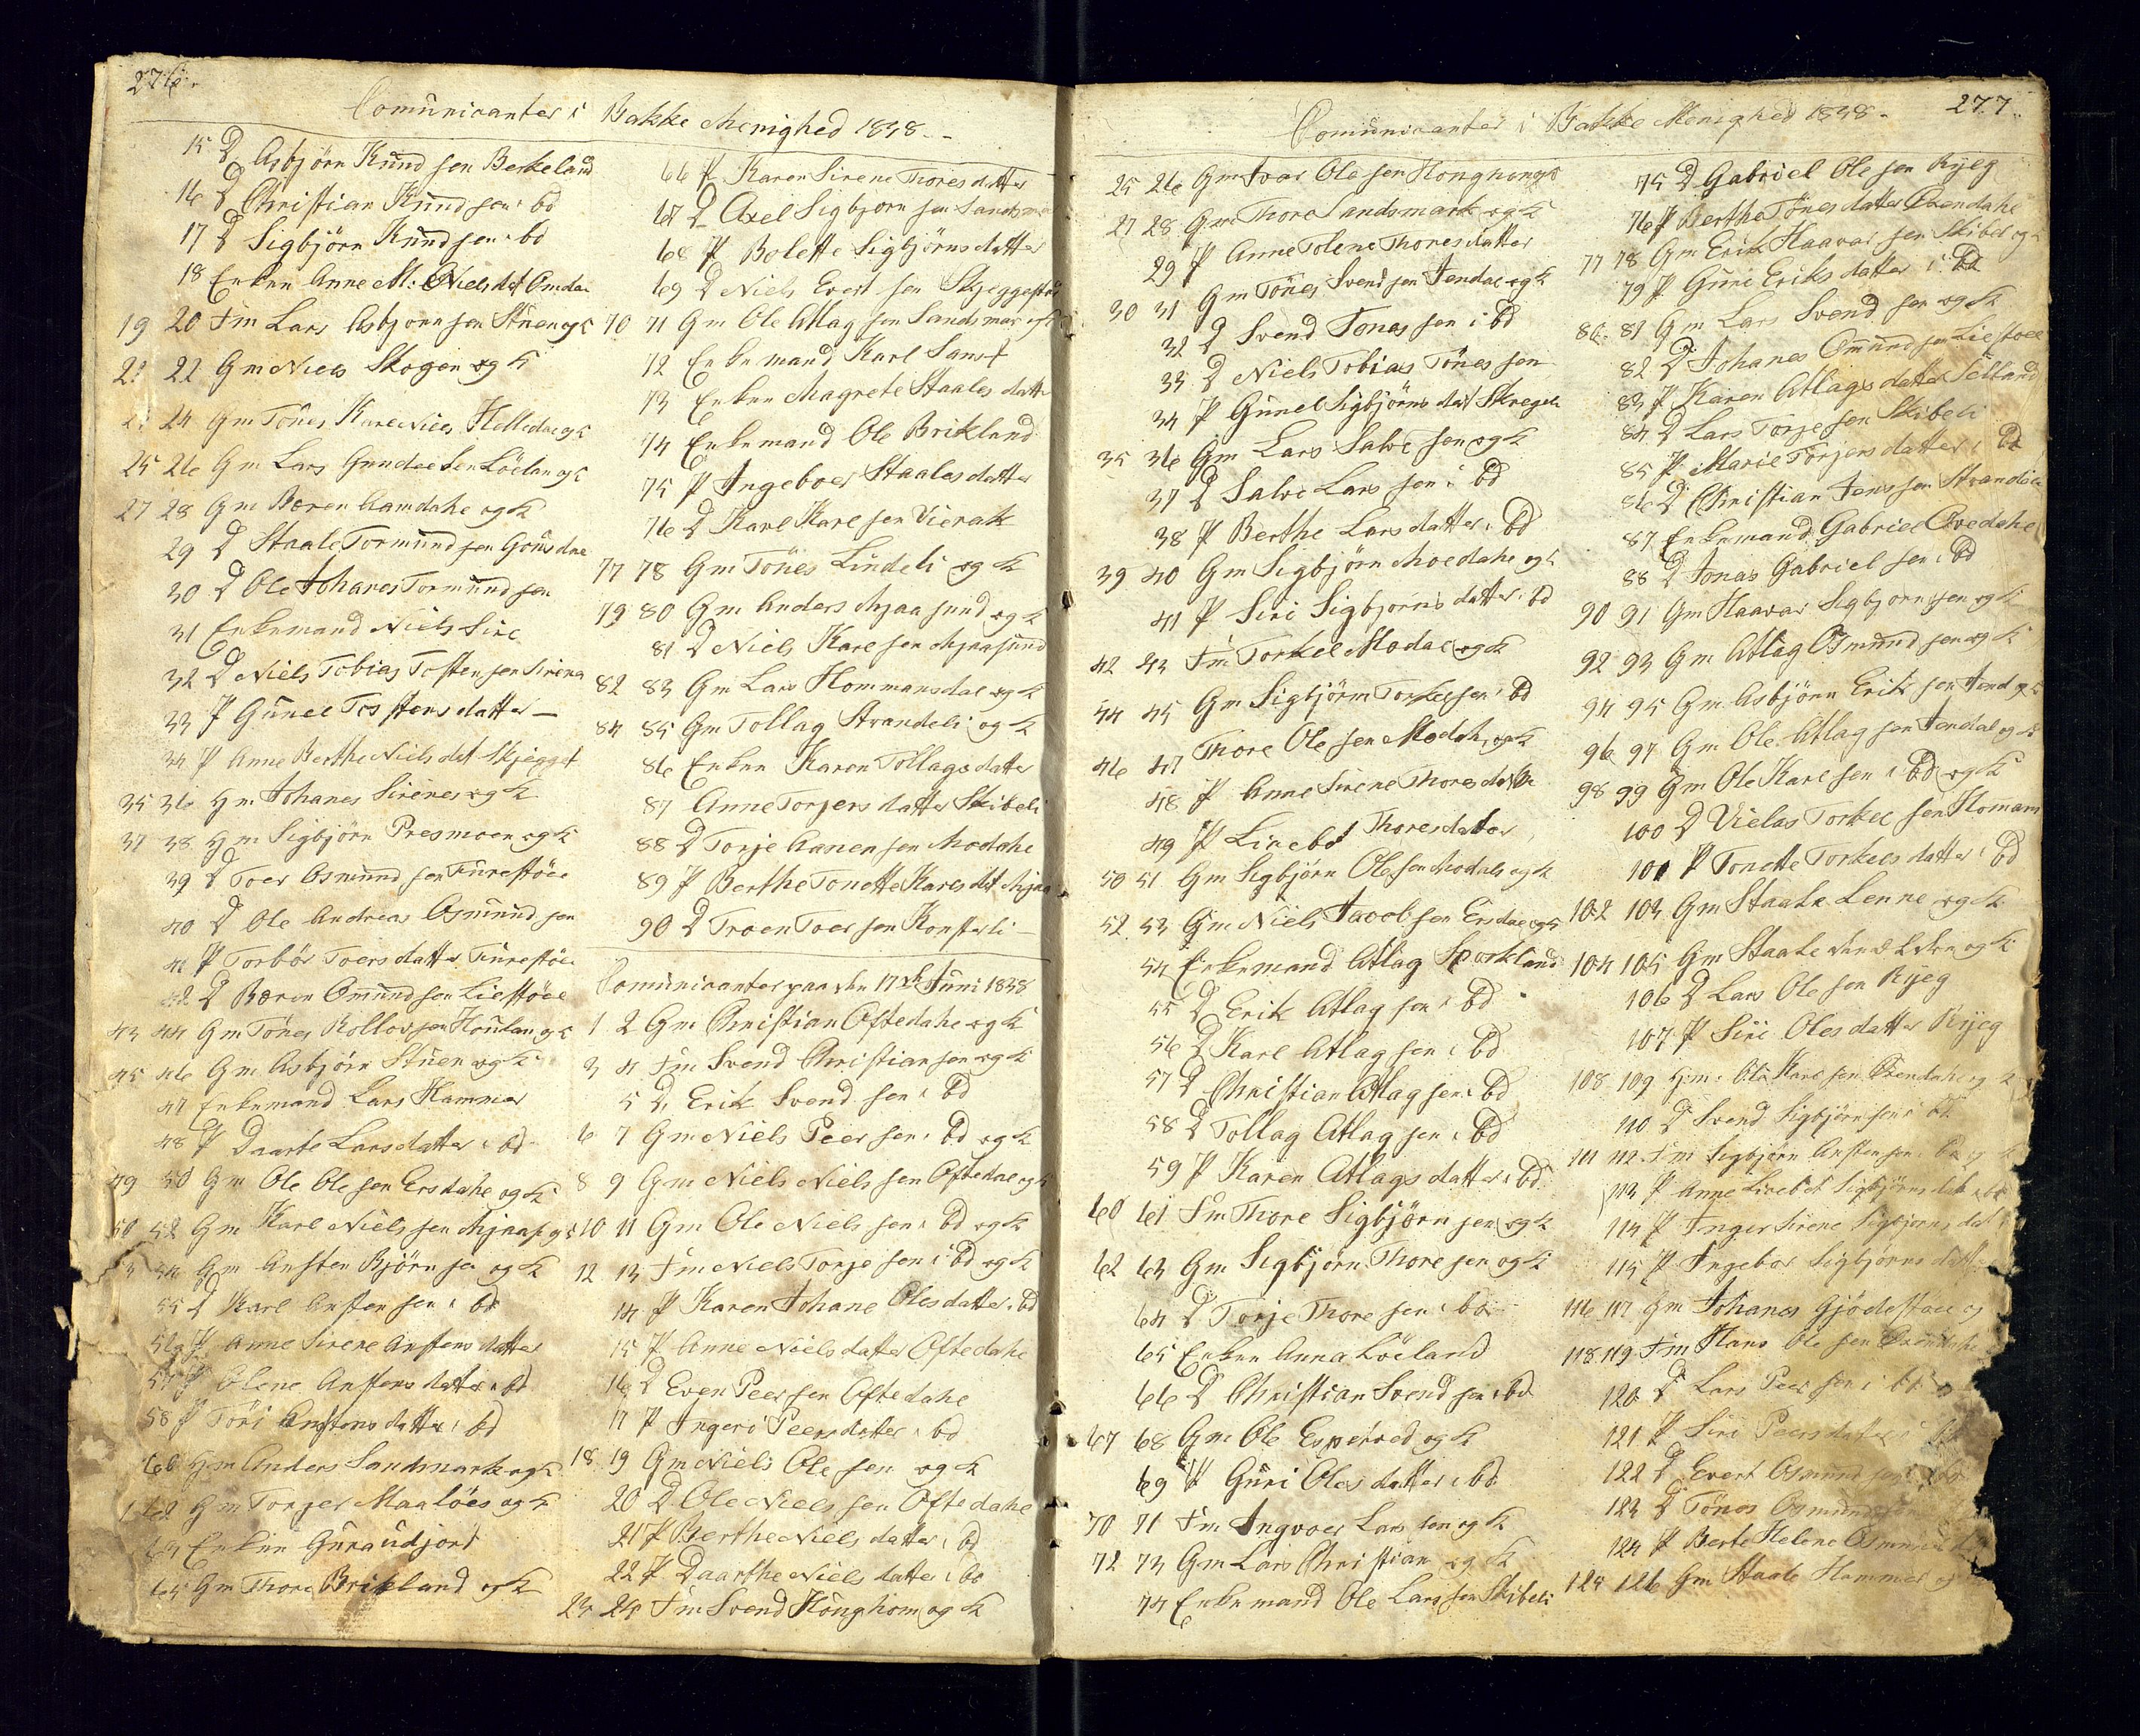 276.
Comunicanter i Bakke Menighed 1838.
15 D Asbjörn Knud sen Berkeland
16 D Christian Knud sen i bd
17 D Sigbjörn Knud sen i bd
18 Enken Anne M: Niels dt Omdal
19 20 Fm Lars Asbjorn sen Stuen og K
21 22 Gm Niels Skogen og K
24 Gm Tönes Karenies Helledal og K
25 26 Gm Lars Gundersen Löeland og K
27 28 Gm Bæren Aamdahe og K
29 D Staale Tormund sen
30 D Ole Johanes Tormund sen
31 Enkemand Niels Sire
32 D Niels Tobias Tosten sen Sirenes
33 P Gunel Tostens datter
34 P Anne Berthe Niels dt Skjegget
35 36 Gm Johanes Sirenes og K
37 38 Gm Sigbjörn Presmoen og K
39 D Toer Osmund sen Furestöel
40 D Ole Andreas Osmund sen
41 P Torbör Toers datter Furestöel
42 D Bæren Omund sen Liestöel
43 44 Gm Tönes Rollov sen Houlan og K
45 46 Gm Asbjörn Stuen og K
47 Enkemand Lars Hammer
48 P Daarte Lars datter i bd
49 50 Gm Ole Ole sen Ersdahe og K
52 Gm Karl Niels sen Mjaas og K
54 Gm Ansten Björn sen og K
55 D Karl Ansten sen i bd
56 P Anne Sirene Anstens datter
57 P Olene Anstens datter i bd
58 P Töri Anstens datter i bd
60 Gm Anders Sandsmark og K
62 Gm Torger Maalöes og K
Enken Guraudjord
65 Gm Thore Brikland og K
66 P Karen Sirene Thores datter
67 D Axel Sigbjorn sen Sandsma
68 P Bolette Sigbjörns datter
69 D Niels Evert sen Skjeggestad
70 71 Gm Ole Atlag sen Sandsmar og K
72 Enkemand Karl
73 Enken Magrete Staales datter
74 Enkemand Ole Brikland
75 P Ingeboer Staales datter
76 D Karl Karl sen Vierak
77 78 Gm Tönes Lindeli og K
79 80 Gm Anders Mjaasund og K
81 D Niels Karl sen Mjaasund
82 83 Gm Lars Hommansdal og K
84 85 Gm Tollag Strandeli og K
86 Enken Karen Tollags datter
87 Anne Torjers datter Skibeli
88 D Torje Aanen sen Modahe
89 P Berthe Tonette Karls dt Mjaa
90 D Troen Toer sen Konsterli
Comunicanter paa den 17de Juni 1838
1 2 Gm Christian Oftedahe og K
3 4 Fm Svend Christian sen og K
5 D. Erik Svend sen i bd
6 7 Gm Niels Peer sen i bd og K
8 9 Gm Niels Niels sen Oftedal og K
10 11 Gm Ole Niels sen i bd og K
12 13 Fm Niels Torje sen i bd og K
14 P Karen Johane Oles datter i bd
15 P Anne Niels datter Oftedahe
16 D Even Peer sen Oftedahe
17 P Ingeri Peers datter i bd
18 19 Gm Niels Ole sen og K
20 D Ole Niels sen Oftedahe
21 P Berthe Niels datter i bd
22 P Daarthe Niels datter i bd
23 24 Fm Svend Honghom og K
277.
Comunicanter i Bakke Menighed 1838.
25 26 Gm Ivar Ole sen Honghom og K
27 28 Gm Thore Sandsmark og K
29 P Anne Tolene Thores datter
30 31 Gm Tönes Svend sen Jendal og K
32 D Svend Tönes sen i bd
33 D Niels Tobias Tönes sen
34 P Gunel Sigbjörns dat Skregeli
35 36 Gm Lars Salve sen og K
37 D Salve Lars sen i bd
38 P Berthe Lars datter i bd
39 40 Gm Sigbjörn Moedahe og K
41 P Siri Sigbjorns datter i bd
42 43 Fm Torkel Modal og K
44 45 Gm Sigbjörn Torkel sen i bd
46 47 Thore Ole sen Modahe og K
48 P Anne Sirene Thores datter
49 P Lisebt Thores datter
50 51 Gm Sigbjörn Ole sen Modale og K
52 53 Gm Niels Jacob sen Ersdal og K
54 Enkemand Atlag Sporkland
55 D Erik Atlag sen i bd
56 D Karl Atlag sen i bd
57 D Christian Atlag sen i bd
58 D Tollag Atlag sen i bd
59 P Karen Atlags datter i bd
60 61 Fm Thore Sigbjörn sen og K
62 63 Gm Sigbjörn Thore sen og K
64 D Torje Thore sen i bd
65 Enken Anna Löeland
66 D Christian Svend sen i bd
67 68 Gm Ole Espetved og K
69 P Guri Oles datter i bd
70 71 Fm Ingvoer Lars sen og K
72 73 Gm Lars Christian og K
74 Enkemand Ole Lars sen Skibeli
75 D Gabriel Ole sen Rijeg
76 P Berthe Tönes datter Ovendahe
77 78 Gm Erik Haavar sen Skibel og K
79 P Guri Eriks datter i bd
80 81 Gm Lars Svend sen og K
82 D Johanes Omund sen Liestöel
83 P Karen Atlags datter Selland
84 D Lars Torje sen Skibeli
85 P Marie Torjers datter i bd
86 D Christian Jens sen Strandeli
87 Enkemand Gabriel Ovedahe
88 D Jonas Gabriel sen i bd
90 91 Gm Haavar Sigbjorn sen og K
92 93 Gm Atlag Osmund sen og K
94 95 Gm Asbjörn Erik sen Jend og K
96 97 Gm Ole Atlag sen Jendal og K
98 99 Gm Ole Karl sen i bd og K
100 D Vielas Torkel sen Homam
101 P Tonette Torkels datter i bd
102 103 Gm Staale Lenne og K
104 105 Gm Staale og K
106 D Lars Ole sen Rijeg
107 P Siri Oles datter Rijeg
108 109 Gm Ole Karl sen Ovendahe og K
110 D Svend Sigbjörn sen i bd
111 112 Fm Sigbjörn Ansten sen i bd og K
113 P Anne Lisebet Sigbjörns dat i bd
114 P Inger Sirene Sigbjorns dat
115 P Ingebor Sigbjorns datter
116 117 Gm Johanes Gjödestöel og
118 119 Fm Hans Ole sen Ovendahe
120 D Lars Peer sen i bd
121 P Siri Peers datter i bd
122 D Evert Osmund sen i bd
123 D Tönes Osmund sen
124 P Berte Helene Osmund
125 126 Gm Staale Hammer og